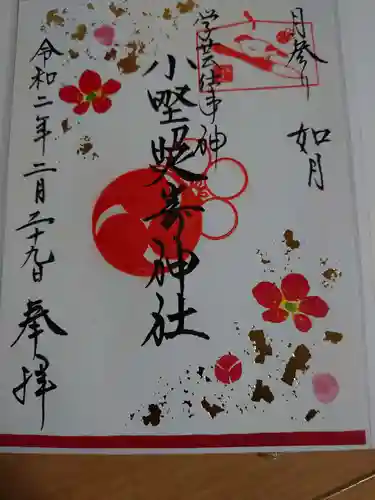 月参り 如月
学芸仕事神
小野照崎神社
令和二年二月二十九日 奉拝